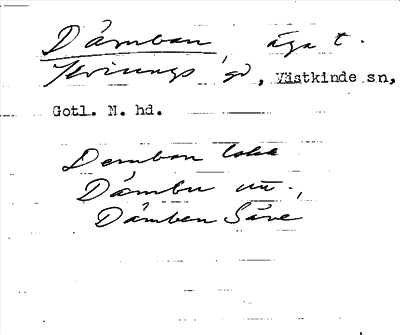 Dämban, äga t.
Kvinungs gd, Västkinde sn,
Gotl. N. hd.
Demban loka
Dämbu
Dämben Säve